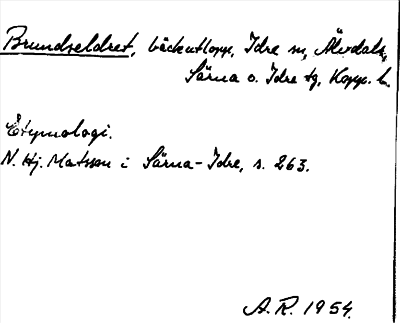 Brundseldret, bäckutlopp, Idre sn, Älvdals,
Särna o. Idre tg, Kopp. l.
Etymologi.
N. Hj. Matsson i Särna-Idre, s. 263.
A.R. 1954.